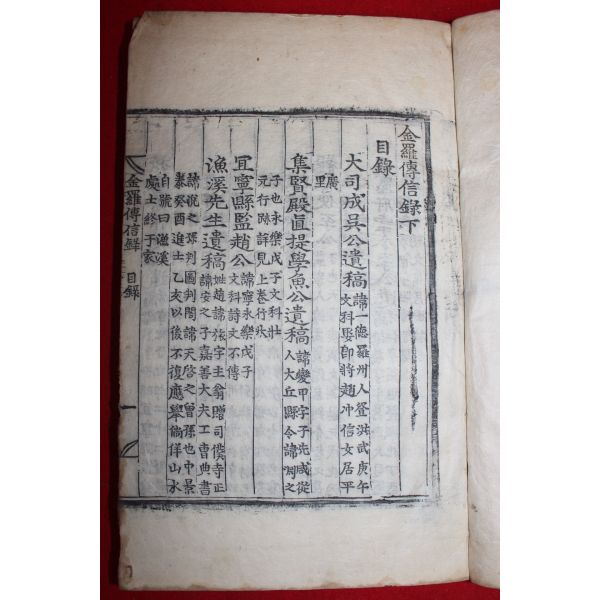 金羅傳信錄下
目錄
大司成吳公遺稿 諱一德羅州人登洪武庚午
文科娶郎將趙冲信女居平
廣里
集賢殿直提學魚公遺稿 諱變甲字子先咸從
人大丘縣令諱淵之
子也永樂戊子文科壯
元行跡詳見上卷行狀
宜寧縣監趙公 諱寧永樂戊子
文科詩文不傳
漁溪先生遺稿 姓趙諱旅字主翁贈司僕寺正
諱安之子嘉善大夫工曹典書
諱悅之孫判圖判閤諱天啓之曾孫也中景
泰癸酉進士乙亥以後不復應擧倘佯山水
自號曰漁溪
處士終于家
金羅傳信錄 目錄 一